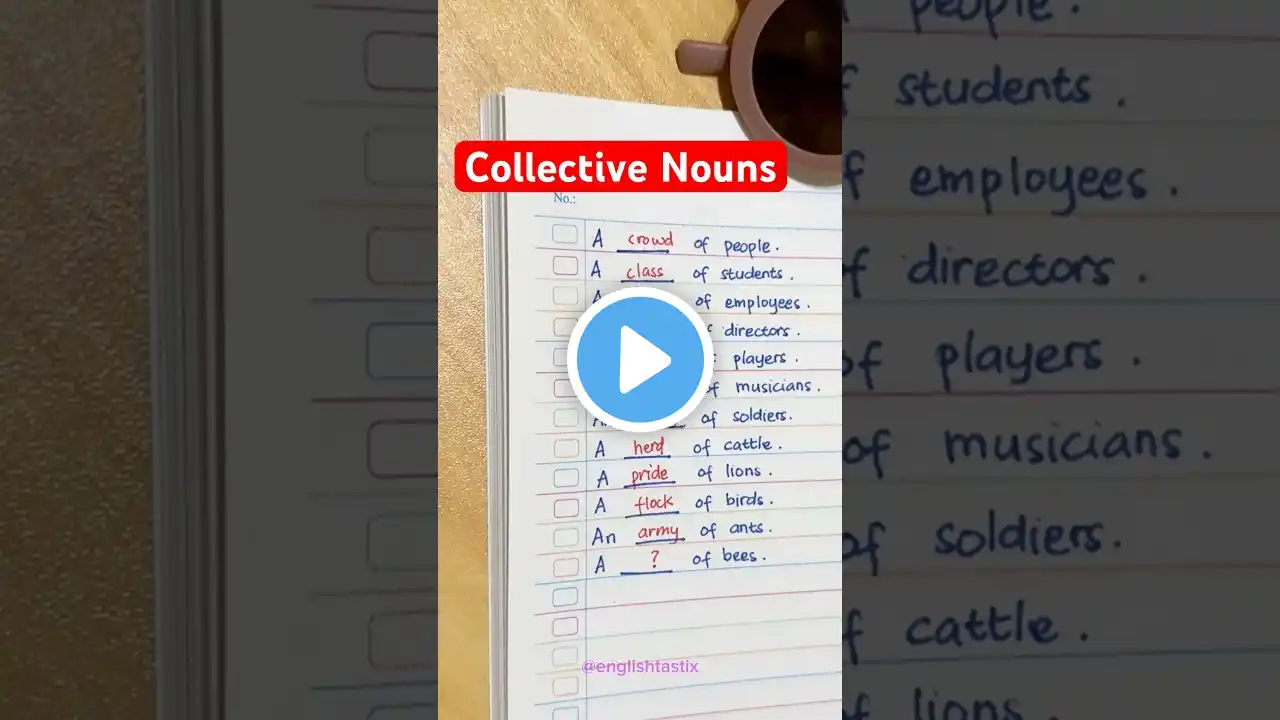 Collective Nouns
No.:
A crowd of people.
A class of students.
A of employees.
directors.
players.
of musicians.
An of soldiers.
A herd of cattle.
A pride of lions.
A flock of birds.
An army of ants.
A ? of bees.
@englishtastix
people.
students.
of employees.
of directors.
of players.
of musicians.
of soldiers.
cattle.
lions.